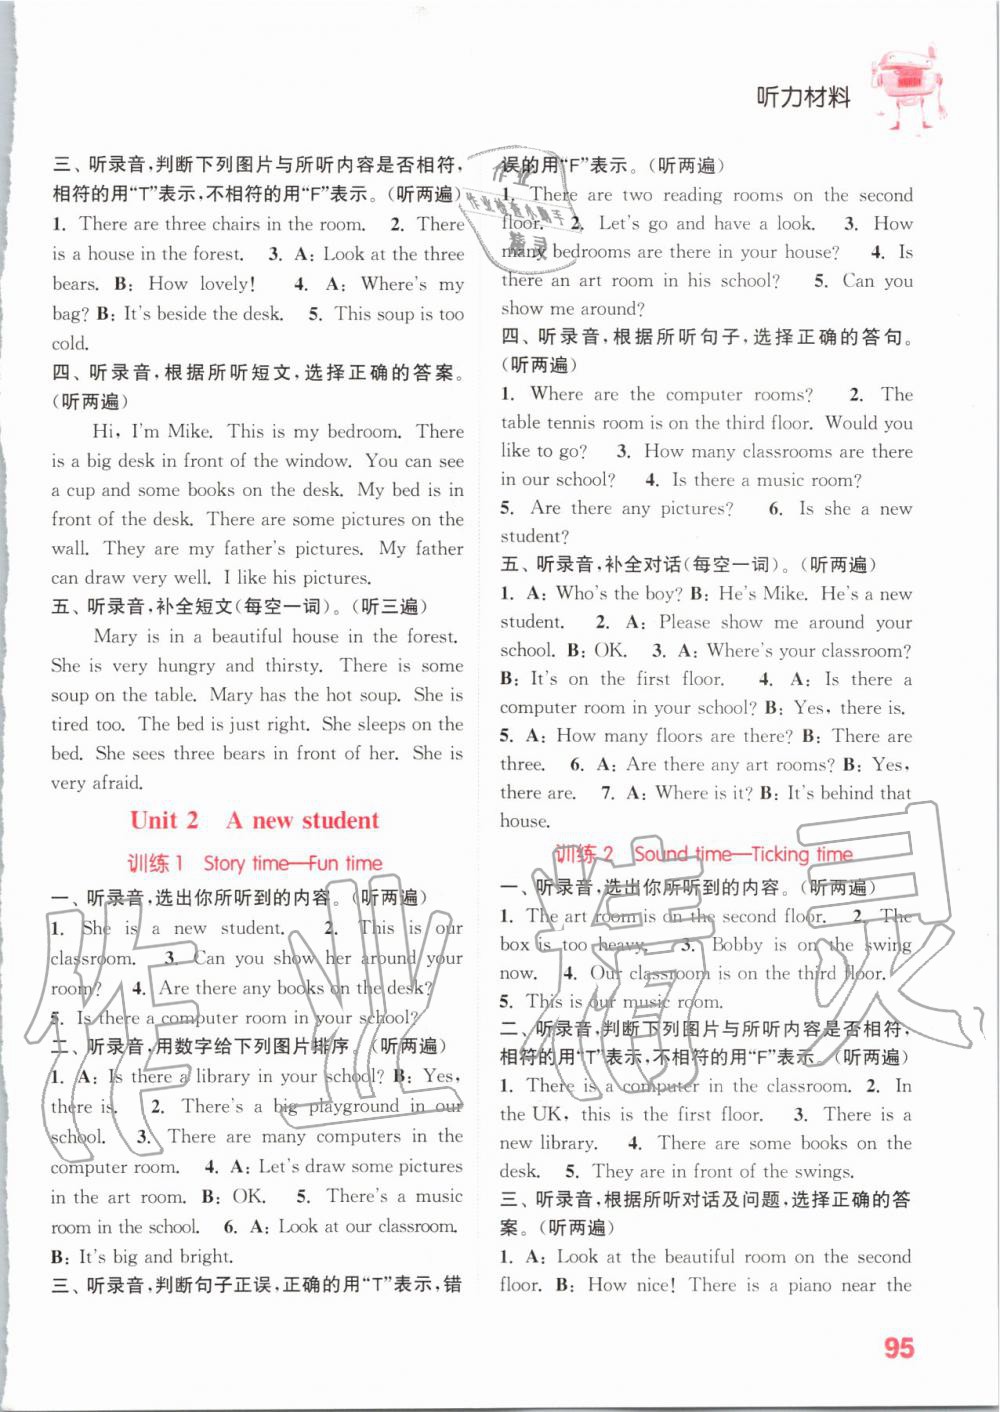 听力材料
三、听录音,判断下列图片与所听内容是否相符,
相符的用“T”表示,不相符的用“F”表示。(听两遍)
1. There are three chairs in the room. 2. There
is a house in the forest. 3. A: Look at the three
bears. B: How lovely! 4. A: Where's my
bag? B: It's beside the desk. 5. This soup is too
cold.
四、听录音,根据所听短文,选择正确的答案。
(听两遍)
Hi, I'm Mike. This is my bedroom. There
is a big desk in front of the window. You can see
a cup and some books on the desk. My bed is in
front of the desk. There are some pictures on the
wall. They are my father's pictures. My father
can draw very well. I like his pictures.
五、听录音,补全短文(每空一词)。(听三遍)
Mary is in a beautiful house in the forest.
She is very hungry and thirsty. There is some
soup on the table. Mary has the hot soup. She is
tired too. The bed is just right. She sleeps on the
bed. She sees three bears in front of her. She is
very afraid.
Unit 2 A new student
训练1 Story time—Fun time
一、听录音,选出你所听到的内容。(听两遍)
1. She is a new student. 2. This is our
classroom. 3. Can you show her around your
room? 4. Are there any books on the desk?
5. Is there a computer room in your school?
二、听录音,用数字给下列图片排序。(听两遍)
1. A: Is there a library in your school? B: Yes,
there is. 2. There's a big playground in our
school. 3. There are many computers in the
computer room. 4. A: Let's draw some pictures
in the art room. B: OK. 5. There's a music
room in the school. 6. A: Look at our classroom.
B: It's big and bright.
三、听录音,判断句子正误,正确的用“T”表示,错
误的用“F”表示。(听两遍)
1. There are two reading rooms on the second
floor. 2. Let's go and have a look. 3. How
many bedrooms are there in your house? 4. Is
there an art room in his school? 5. Can you
show me around?
四、听录音,根据所听句子,选择正确的答句。
(听两遍)
1. Where are the computer rooms? 2. The
table tennis room is on the third floor. Would you
like to go? 3. How many classrooms are there
in our school? 4. Is there a music room?
5. Are there any pictures? 6. Is she a new
student?
五、听录音,补全对话(每空一词)。(听两遍)
1. A: Who's the boy? B: He's Mike. He's a new
student. 2. A: Please show me around your
school. B: OK. 3. A: Where's your classroom?
B: It's on the first floor. 4. A: Is there a
computer room in your school? B: Yes, there is.
5. A: How many floors are there? B: There are
three. 6. A: Are there any art rooms? B: Yes,
there are. 7. A: Where is it? B: It's behind that
house.
训练2 Sound time—Ticking time
一、听录音,选出你所听到的内容。(听两遍)
1. The art room is on the second floor. 2. The
box is too heavy. 3. Bobby is on the swing
now. 4. Our classroom is on the third floor.
5. This is our music room.
二、听录音,判断下列图片与所听内容是否相符,
相符的用“T”表示,不相符的用“F”表示。(听两遍)
1. There is a computer in the classroom. 2. In
the UK, this is the first floor. 3. There is a
new library. 4. There are some books on the
desk. 5. They are in front of the swings.
三、听录音,根据所听对话及问题,选择正确的答
案。(听两遍)
1. A: Look at the beautiful room on the second
floor. B: How nice! There is a piano near the
95
作业精灵